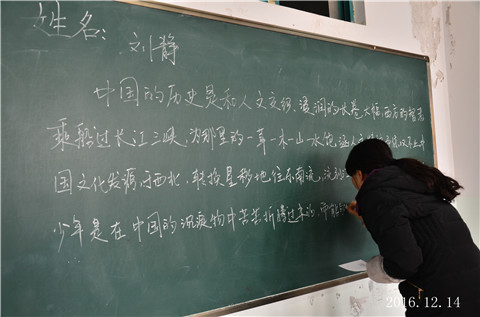 姓名: 刘静
中国的历史是和人文交织、浸润的长卷大幅,西方的智者
乘船过长江三峡,为那里的一草一木一山一水饱
国文化发源于西北,转换星移地往东南流,流
少年是在中国的沉痕物中苦苦折腾过来的,
2016.12.14